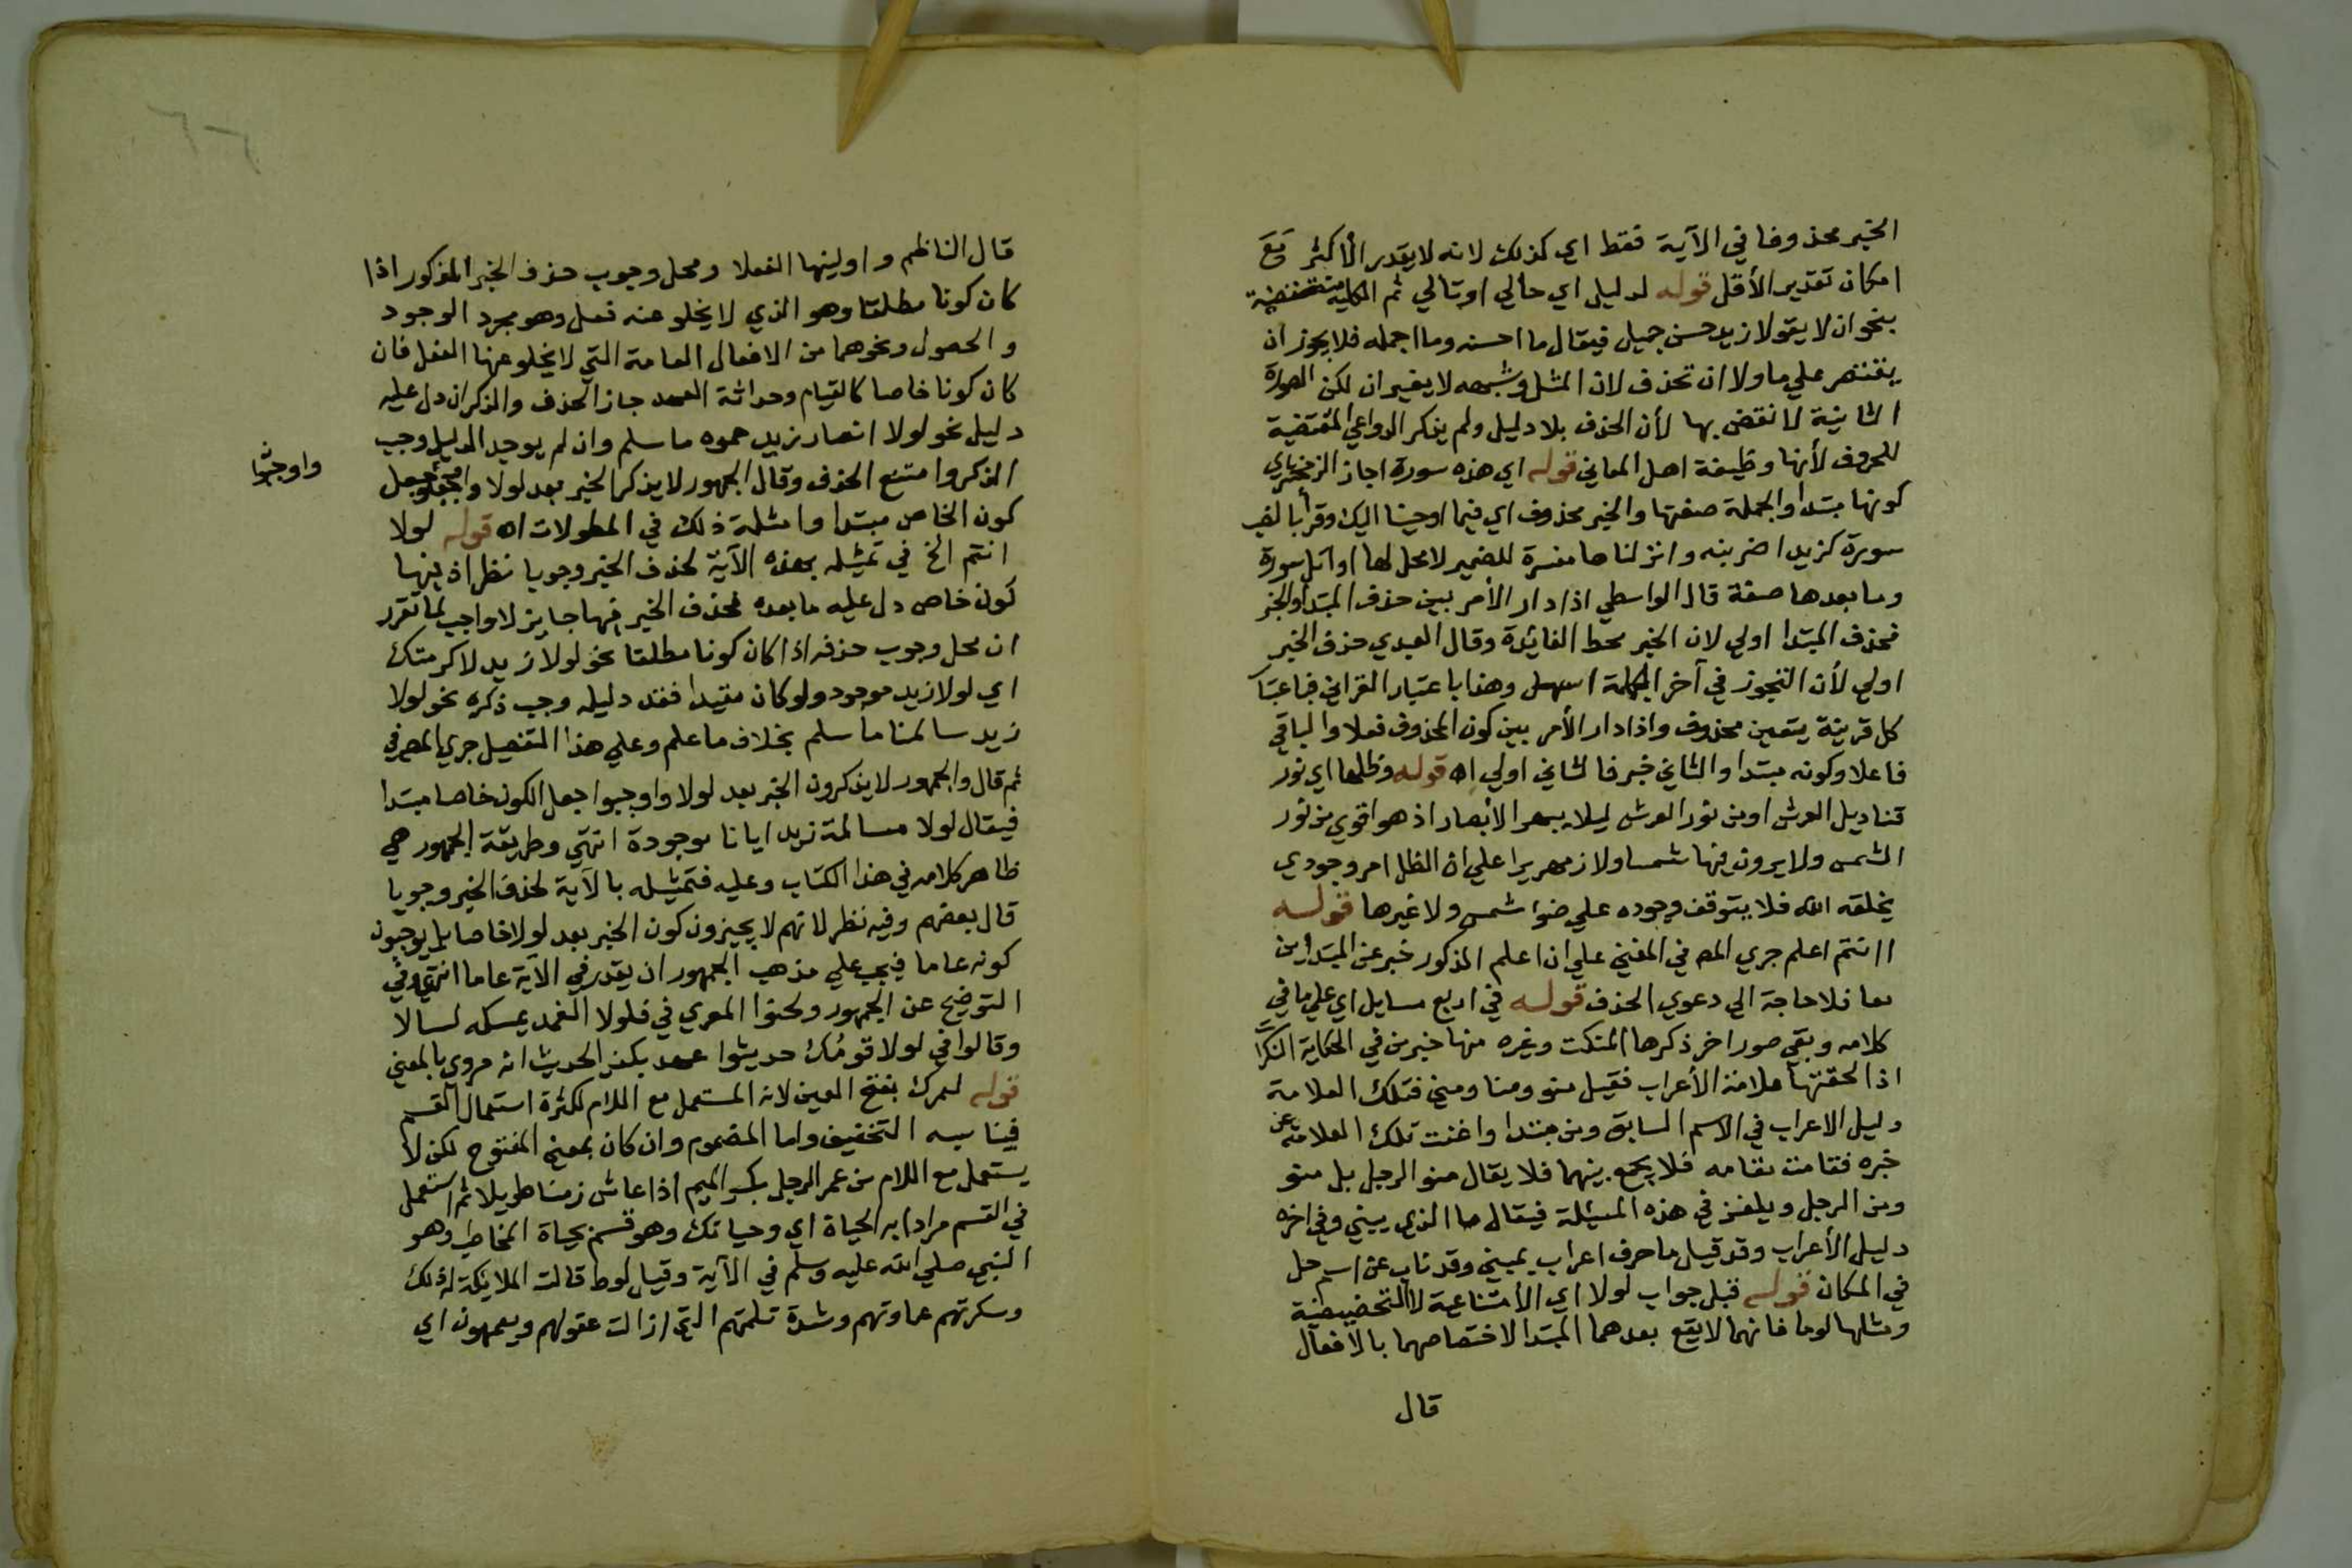 الخبر محذوفا في الآية فقط اي كذلك لانه لا يقدر الأكثر مع
امكان تقدير الأقل قوله لدليل اي حالي او تالي ثم الكلية منتقضة
بنحو ان لا يقولا زيد حسن جميل فيقال ما احسنه وما اجمله فلا يجوز ان
يقتصر علي ما ولا ان تحذف لان المثل وشبهه لا يغيران لكن الصورة
الثانية لا نقض بها لأن الحذف بلا دليل ولم يذكر الدواعي المقتضية
للحذف لأنها وظيفة اهل المعاني قوله اي هذه سورة اجاز الزمخشري
كونها مبتدا والجملة صفتها والخبر محذوف اي فيما اوحينا اليك وقرأ بالنصب
سورة كزيدا ضربته وانزلناها مفسرة للضمير لا محل لها او اتل سورة
وما بعدها صفة قال الواسطي اذا دار الأمر بين حذف المبتدا والخبر
فحذف المبتدا اولي لان الخبر محط الفائدة وقال العبدي حذف الخبر
اولي لأن التجوز في آخر الجملة اسهل وهذا باعتبار القراين فباعتبار
كل قرينة يتعين محذوف واذا دار الأمر بين كون المحذوف فعلا والباقي
فاعلا وكونه مبتدا والثاني خبر فالثاني اولي اه قوله وظلها اي نور
قناديل العرش او من نور العرش ليلا يبهر الأبصار اذ هو اقوي من نور
الشمس ولا يرون فيها شمسا ولا زمهريرا علي ان الظل امر وجودي
يخلقه الله فلا يتوقف وجوده علي ضوا شمس ولا غيرها قوله
اانتم اعلم جري المص في المغني علي ان اعلم المذكور خبر عن المبتداين
معا فلا حاجة الي دعوي الحذف قوله في اربع مسايل اي علي ما في
كلامه وبقي صور اخر ذكرها المنكت وغيره منها خبر من في الحكاية النكرات
اذا الحقتها علامة الأعراب فقيل منو ومنا ومني فتلك العلامة
دليل الاعراب في الاسم السابق ومن مبتدا واغنت تلك العلامة عن
خبره فقامت مقامه فلا يجمع بينهما فلا يقال منو الرجل بل منو
ومن الرجل ويلغز في هذه المسئلة فيقال ما الذي يبني وفي اخره
دليل الأعراب وقد قيل ما حرف اعراب بمبني وقد ناب عن اسم حل
في المكان قوله قبل جواب لولا اي الأمتناعية لا التحضيضية
ومثلها لوما فانهما لا يقع بعدهما المبتدا لاختصاصهما بالأفعال
قال
قال الناظم واولينها الفعلا ومحل وجوب حذف الخبر المذكور اذا
كان كونا مطلقا وهو الذي لا يخلو عنه فعل وهو مجرد الوجود
والحصول ونحوهما من الافعال العامة التي لا يخلو عنها الفعل فان
كان كونا خاصا كالقيام وحداثة العهد جاز الحذف والذكر ان دل عليه
دليل نحو لولا انصار زيد حموه ما سلم وان لم يوجد الدليل وجب
الذكر وامتنع الحذف وقال الجمهور لا يذكر الخبر بعد لولا جعل
واوجبوا
كون الخاص مبتدا وامثلة ذلك في المطولات اه قوله لولا
انتم الخ في تمثيله بهذه الآية لحذف الخبر وجوبا نظر اذ فيها
كون خاص دل عليه ما بعده فحذف الخبر فيها جايز لا واجب لما تقرر
ان محل وجوب حذفه اذا كان كونا مطلقا نحو لولا زيد لاكرمتك
اي لولا زيد موجود ولو كان مقيدا ففقد دليله وجب ذكره نحو لولا
زيد سالمنا ما سلم بخلاف ما علم وعلي هذا التفصيل جري المص في
ثم قال والجمهور لا يذكرون الخبر بعد لولا واوجبوا جعل الكون خاصا مبتدا
فيقال لولا مسالمة زيد ايانا موجودة انتهي وطريقة الجمهور هي
ظاهر كلامه في هذا الكتاب وعليه فتمثيله بالآية لحذف الخبر وجوبا
قال بعضهم وفيه نظر لانهم لا يجيزون كون الخبر بعد لولا خاصا بل يوجبون
كونه عاما فيجب علي مذهب الجمهور ان يقدر في الآية عاما انتهي وفي
التوضيح عن الجمهور ولحنوا المعري في فلولا الغمد يمسكه لسالا
وقالوا في لولا قومك حديثوا عهد بكفر الحديث انه مروي بالمعني
قوله لعمرك بفتح العين لانه المستعمل مع اللام لكثرة استعمال القسم
فيناسبه التخفيف واما المضموم وان كان بمعني المفتوح لكن لا
يستعمل مع اللام من عمر الرجل بكسر الميم اذا عاش زمنا طويلا ثم استعمل
في القسم مرادا به الحياة اي وحياتك وهو قسم بحياة المخاطب وهو
النبي صلي الله عليه وسلم في الآية وقيل لوط قالت الملايكة له ذلك
وسكرتهم غاوتهم وشدة غلمتهم التي ازالت عقولهم ويعمهون اي